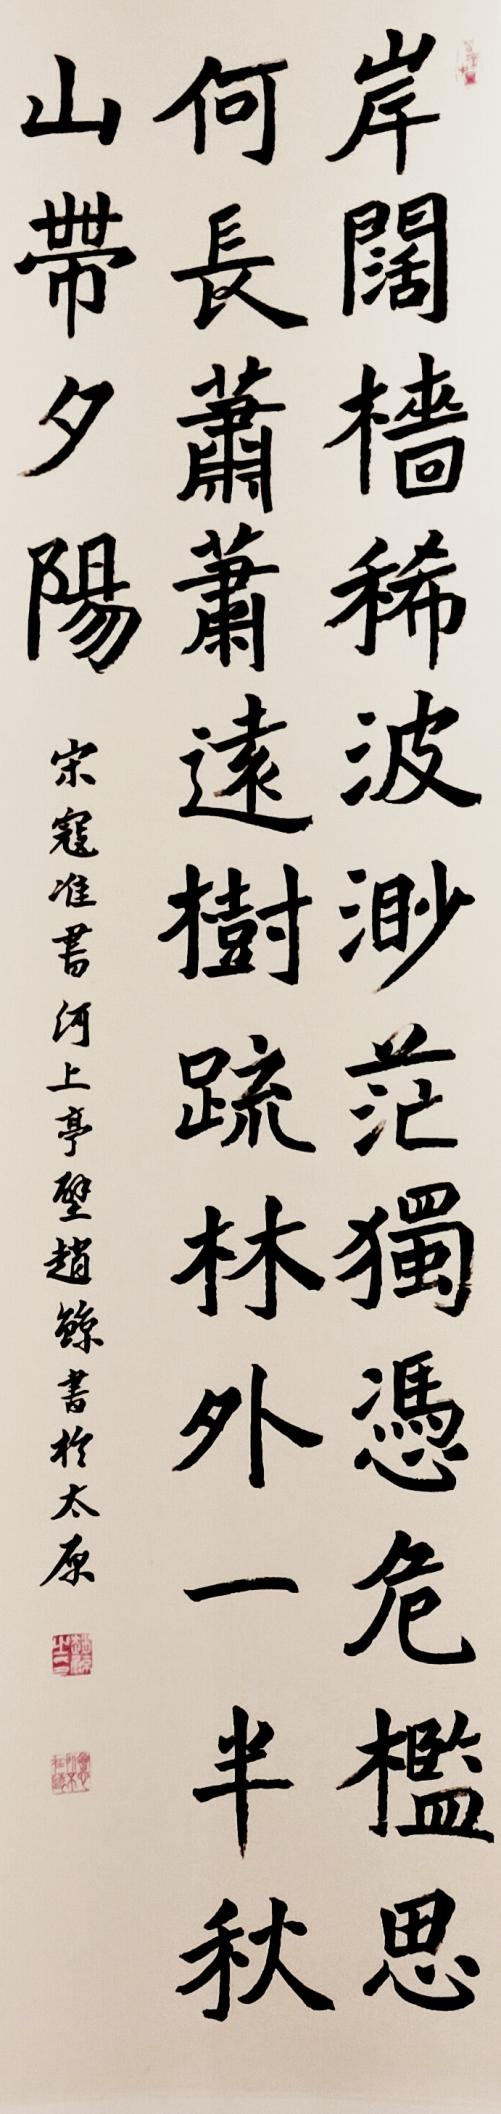 岸闊檣稀波渺茫獨憑危檻思
何長蕭蕭遠樹疏林外一半秋
山帶夕陽
宋寇准書河上亭壁趙鯨書於太原